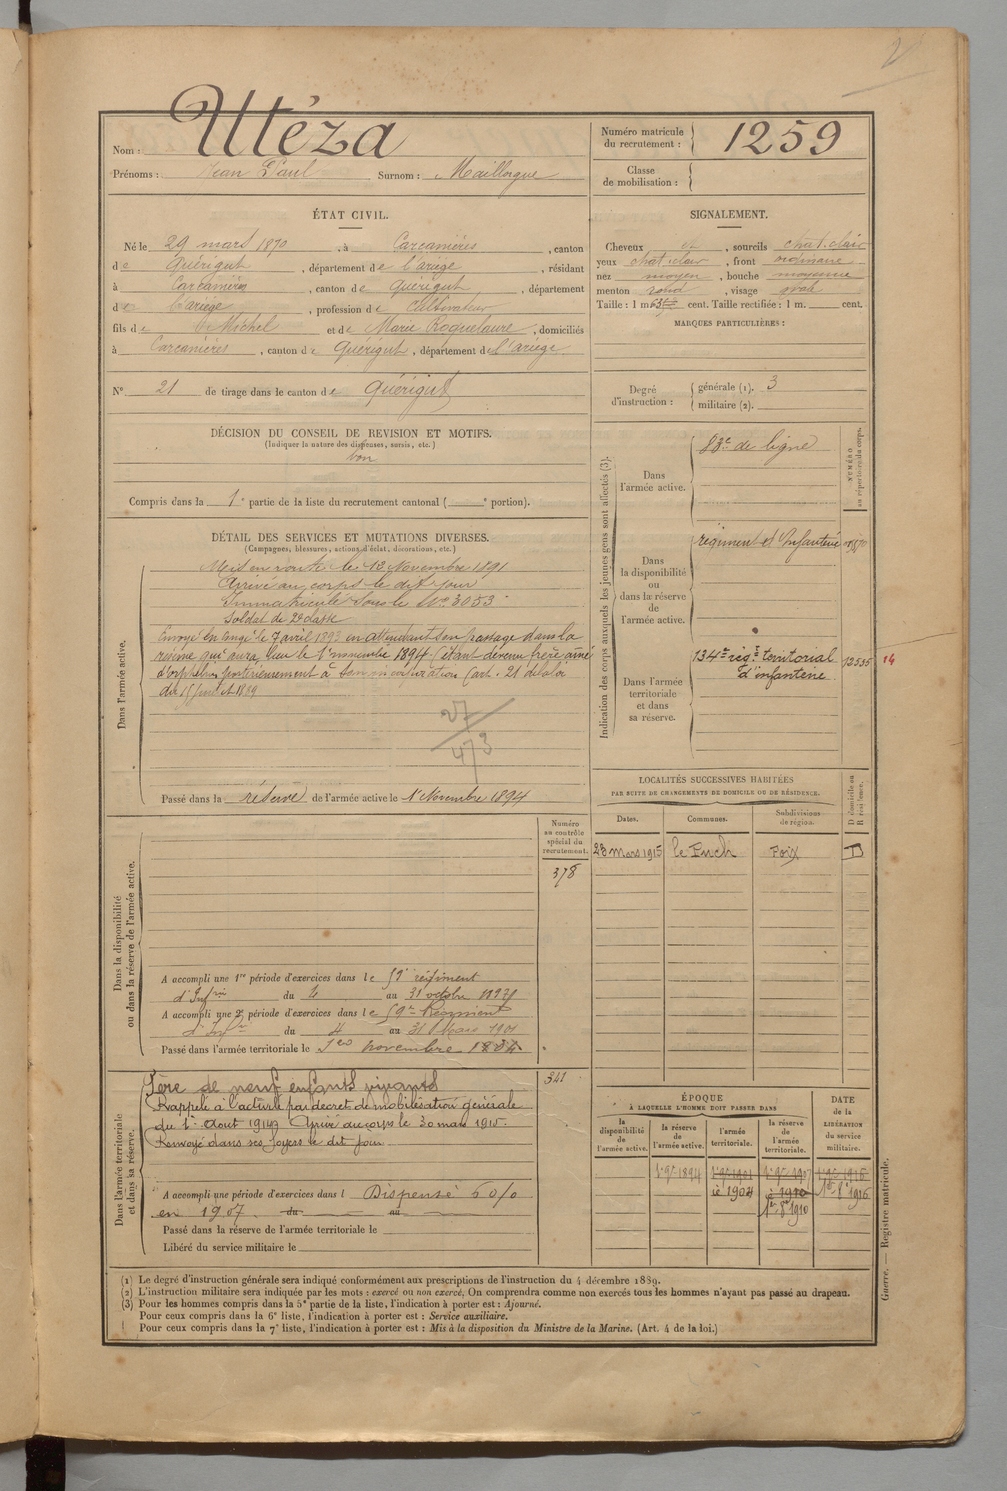 2
Nom : Utéza
Prénoms : Jean Paul Surnom : Maillorgue
Numéro matricule du recrutement : 1259
Classe de mobilisation :
ÉTAT CIVIL.
Né le 29 mars 1870, à Carcanières, canton
de Quérigut, département de l'ariège, résidant
à Carcanières, canton de Quérigut, département
de l'ariège, profession de Cultivateur
fils de Michel et de Marie Roquelaure, domiciliés
à Carcanières, canton de Quérigut, département de l'ariège.
N° 21 de tirage dans le canton de Quérigut
DÉCISION DU CONSEIL DE REVISION ET MOTIFS.
(Indiquer la nature des dispenses, sursis, etc.)
bon
Compris dans la 1e partie de la liste du recrutement cantonal ( e portion).
DÉTAIL DES SERVICES ET MUTATIONS DIVERSES.
(Campagnes, blessures, actions d'éclat, décorations, etc.)
Dans l'armée active.
Mis en route le 13 Novembre 1891
Arrivé au corps le dit jour
Immatriculé sous le N° 3053
Soldat de 2e classe
Envoyé en congé le 7 avril 1893 en attendant son passage dans la
réserve qui aura lieu le 1er novembre 1894 (étant devenu frère aîné
d'orphelins postérieurement à son incorporation (art. 21 de la loi
du 15 juillet 1889
27
473
Passé dans la réserve de l'armée active le 1er Novembre 1894
Dans la disponibilité ou dans la réserve de l'armée active.
Numéro au contrôle spécial du recrutement.
378
A accompli une 1re période d'exercices dans le 59e régiment
d'Infrie du 4 au 31 octobre
A accompli une 2e période d'exercices dans le 59e Régiment
d'Infie du 4 au 31 Mars 1901
Passé dans l'armée territoriale le 1er novembre
Dans l'armée territoriale et dans sa réserve.
341
Père de neuf enfants vivants
Rappelé à l'activité par décret de mobilisation générale
du 1er Aout 1914. Arrivé au corps le 30 mars 1915.
Renvoyé dans ses foyers le dit jour.
A accompli une période d'exercices dans l Dispensé 6 0/0
en 1907 du au
Passé dans la réserve de l'armée territoriale le
Libéré du service militaire le
SIGNALEMENT.
Cheveux et, sourcils chat. clair
yeux chat. clair, front ordinaire
nez moyen, bouche moyenne
menton rond, visage oval
Taille : 1 m 63 cent. Taille rectifiée : 1 m. cent.
MARQUES PARTICULIÈRES :
Degré d'instruction : générale (1). 3
militaire (2).
Indication des corps auxquels les jeunes gens sont affectés (3).
NUMÉRO au répertoire du corps.
Dans l'armée active.
83e de ligne
Dans la disponibilité ou dans la réserve de l'armée active.
régiment d'Infanterie
Dans l'armée territoriale et dans sa réserve.
134e régt territorial
d'infanterie
12535
14
LOCALITÉS SUCCESSIVES HABITÉES
PAR SUITE DE CHANGEMENTS DE DOMICILE OU DE RÉSIDENCE.
Dates. Communes. Subdivisions de région. D domicile ou R résidence.
23 mars 1915 le Puch Foix D
ÉPOQUE
À LAQUELLE L'HOMME DOIT PASSER DANS
DATE de la LIBÉRATION du service militaire.
la disponibilité de l'armée active. la réserve de l'armée active. l'armée territoriale. la réserve de l'armée territoriale.
1er 9e 1894 1er 9e 1901 1er 9e 1907 1er 9e 1916
1904 1910 1er 8e 1916
1er 8e 1910
Guerre. — Registre matricule.
(1) Le degré d'instruction générale sera indiqué conformément aux prescriptions de l'instruction du 4 décembre 1889.
(2) L'instruction militaire sera indiquée par les mots : exercé ou non exercé. On comprendra comme non exercés tous les hommes n'ayant pas passé au drapeau.
(3) Pour les hommes compris dans la 5e partie de la liste, l'indication à porter est : Ajourné.
Pour ceux compris dans la 6e liste, l'indication à porter est : Service auxiliaire.
Pour ceux compris dans la 7e liste, l'indication à porter est : Mis à la disposition du Ministre de la Marine. (Art. 4 de la loi.)